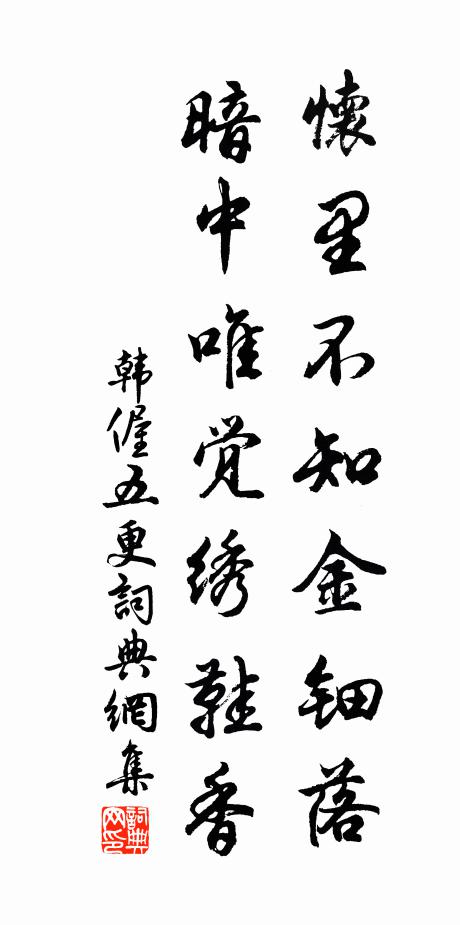 懷里不知金鈿落
暗中唯觉绣鞋香
韩偓五更詞典網集
詞典网印